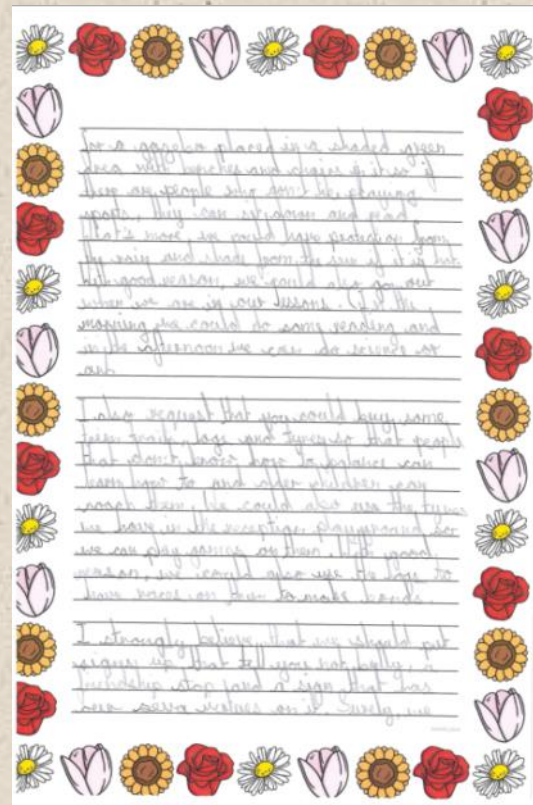 for a gazebo placed in a shaded green
area with benches and chairs in it so if
there are people who don't like playing
sports, they can sit down and read.
What's more, we could have protection from
the rain and shade from the sun if it is hot.
With good reason, we could also go out
when we are in our lessons. In the
morning we could do some reading and
in the afternoon we can do science or
art.
I also request that you could buy some
trim trails, logs and tyres so that people
that don't know how to balance can
learn how to and older children can
coach them. We could also use the tyres
we have in the reception playground so
we can play games on them. With good
reason, we could also use the logs to
have races on
I strongly believe that we should put
signs up that tell you not
friendship stop and a sign that has
our seven values on it. Surely, we